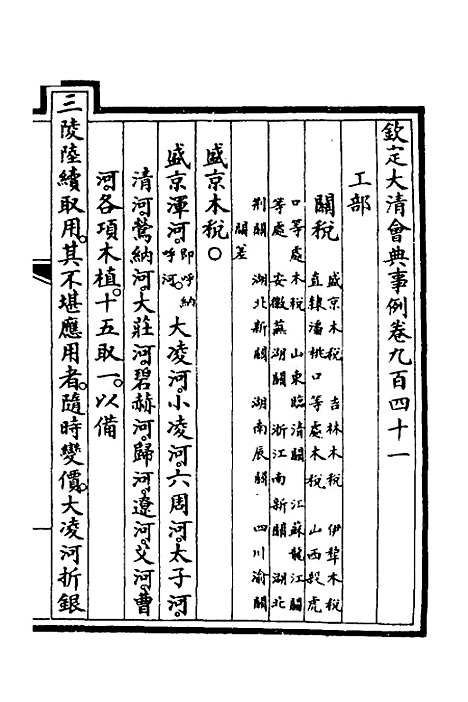 欽定大清會典事例卷九百四十一
工部
關稅 盛京木稅 吉林木稅 伊犂木稅
直隸潘桃口等處木稅 山西殺虎
口等處木稅 山東臨清關 江蘇龍江關
等處 安徽蕪湖關 浙江南新關 湖北
荆關 湖北新關 湖南辰關 四川渝關
關差
盛京木稅○
盛京渾河。即呼納呼河。大凌河。小凌河。六周河。太子河。
清河。鶯納河。大莊河。碧赫河。歸河。遼河。艾河。曹
河。各項木植。十五取一。以備
三陵陸續取用。其不堪應用者。隨時變價。大凌河折銀